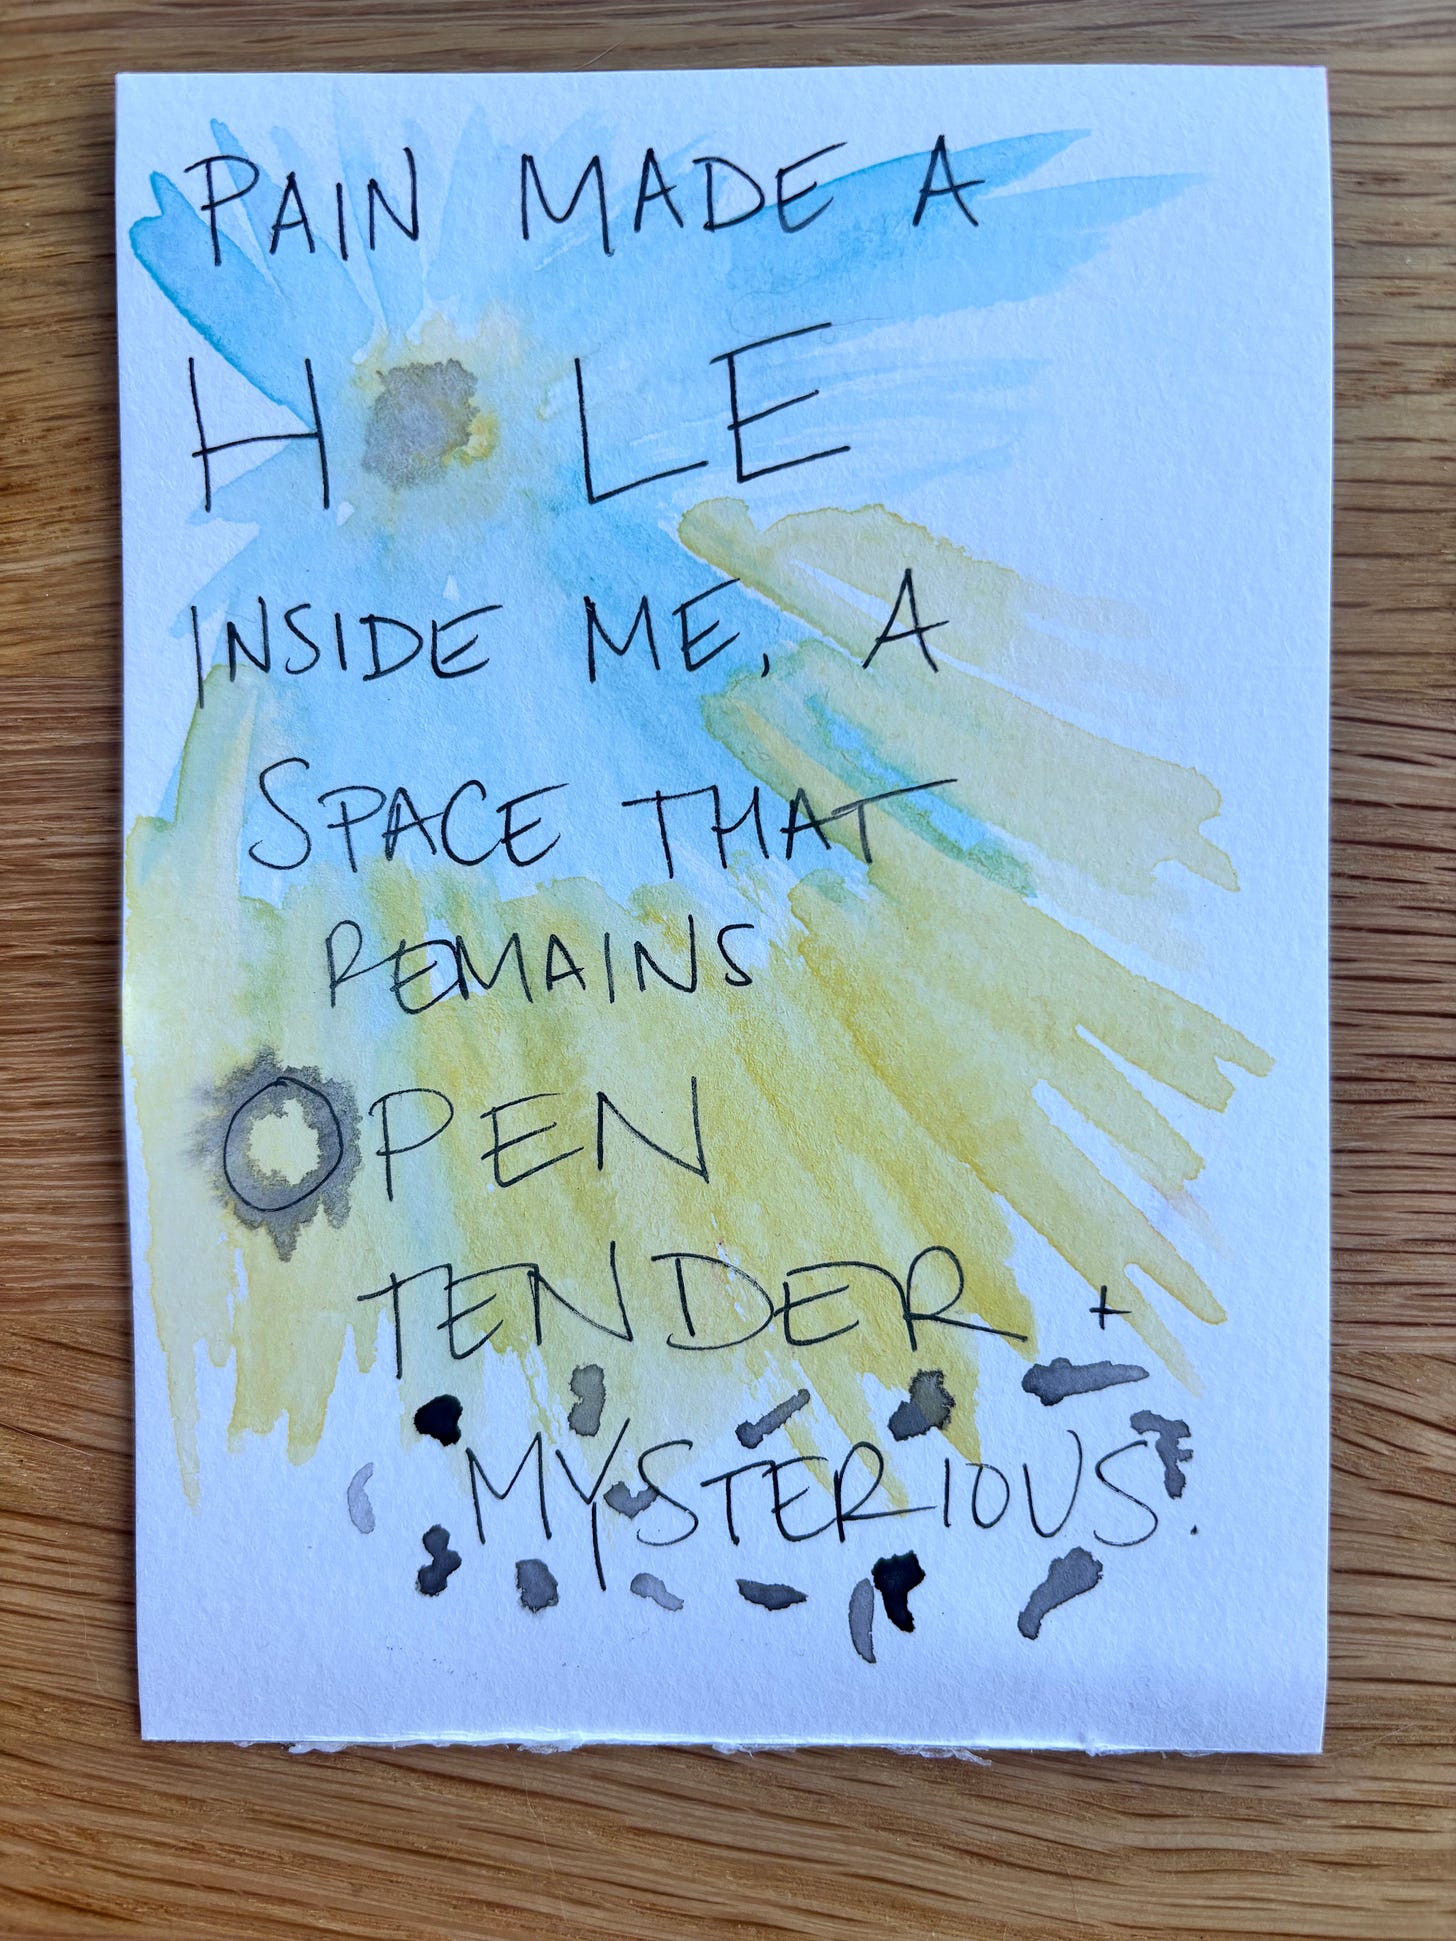 PAIN MADE A
HOLE
INSIDE ME, A
SPACE THAT
REMAINS
OPEN
TENDER +
MYSTERIOUS.